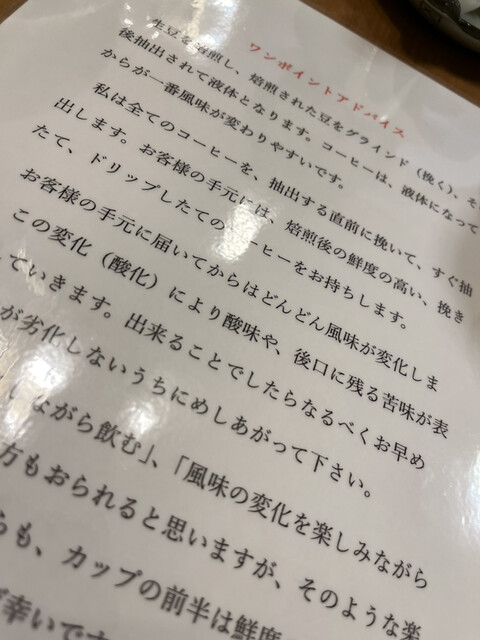 ワンポイントアドバイス
生豆を焙煎し、焙煎された豆をグラインド（挽く）、そ
後抽出されて液体となります。コーヒーは、液体になって
からが一番風味が変わりやすいです。
私は全てのコーヒーを、抽出する直前に挽いて、すぐ抽
出します。お客様の手元には、焙煎後の鮮度の高い、挽き
たて、ドリップしたてのコーヒーをお持ちします。
お客様の手元に届いてからはどんどん風味が変化しま
この変化（酸化）により酸味や、後口に残る苦味が表
ていきます。出来ることでしたらなるべくお早め
が劣化しないうちにめしあがって下さい。
ながら飲む」、「風味の変化を楽しみながら
方もおられると思いますが、そのような楽
も、カップの前半は鮮度
幸いです